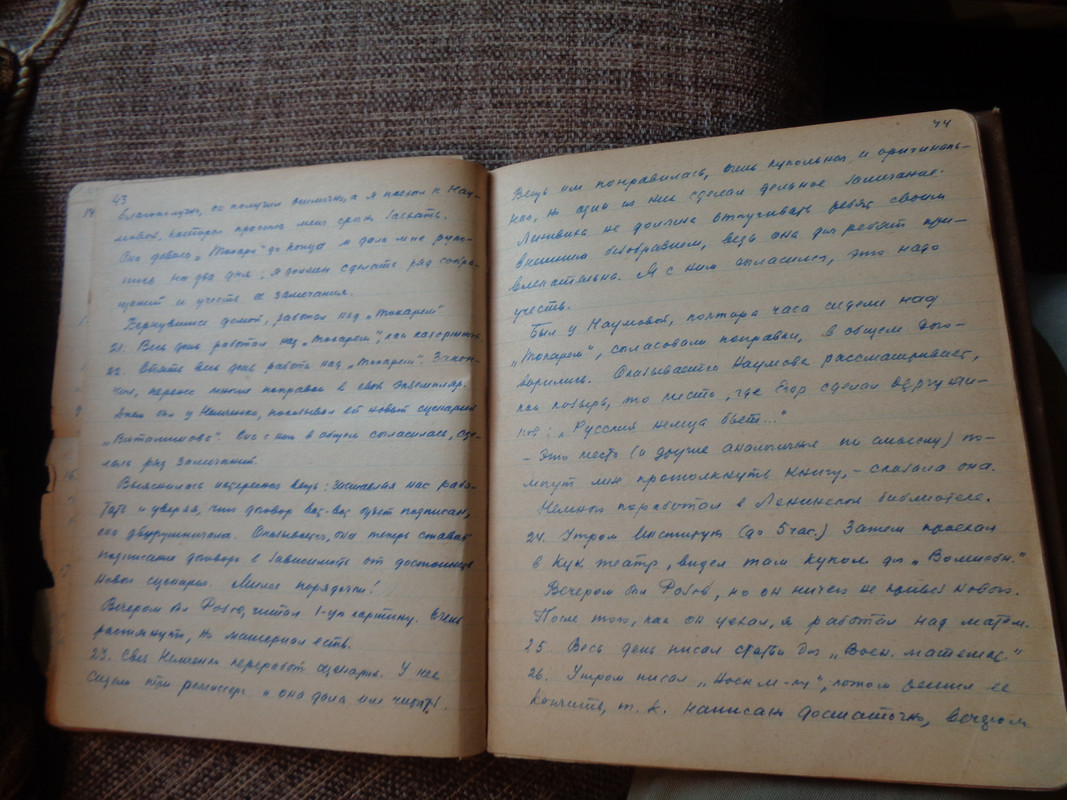 43
благополучно, он получил , а я поехал к Нау-
мовой, которая просила меня сразу заехать.
Она довела „Токаря“ до конца и дала мне руко-
пись на два дня; я должен сделать ряд сокра-
щений и учесть её замечания.
Вернувшись домой, работал над „Токарем“
21. Весь день работал над „Токарем“, как каторжник
22. Опять весь день работа над „Токарем“. Закон-
чил, перенес многие поправки в свой экземпляр.
Днем был у Немченко, показывал ей новый сценарий
„Виталиновъ“. Она с ним в общем согласилась, сде-
лала ряд замечаний.
Выяснилась интересная вещь: заставляя нас рабо-
тать и уверяя, что договор вот-вот будет подписан,
она двурушничала. Оказывается, она теперь ставит
подписание договора в зависимость от достоинств
нового сценария. Милые порядочки!
Вечером был Розов, читал 1-ую картину. Очень
растянуто, но материал есть.
23. Свез Немченко переработ. сценарий. У нее
сидели три режиссера и она дала им читать.
44
Вещь им понравилась, очень кукольная и оригиналь-
ная, но один из них сделал дельное замечание.
Литвина не должна отпугивать ребят своим
внешним безобразием, ведь она для ребят при-
влекательна. Я с ним согласился, это надо
учесть.
Был у Наумовой, полтора часа сидели над
„Токарем“, согласовали поправки, в общем дого-
ворились. Оказывается Наумова рассматривает,
как козырь, то место, где Егор сделал
: „Русский немца бьет...“
- Это место (и другие аналогичные по смыслу) по-
могут мне протолкнуть книгу, - сказала она.
Немного поработал в Ленинской библиотеке.
24. Утром Институт (до 5 час.) Затем проехал
в Кук театр, видел там кукол для „Волшебн.“
Вечером был Розов, но он ничего не привез нового.
После того, как он уехал, я работал над матем.
25. Весь день писал статью для „Воен. математ.“
26. Утром писал „Воен м-ку“, потом решил ее
кончить, т. к. написано достаточно, вечером